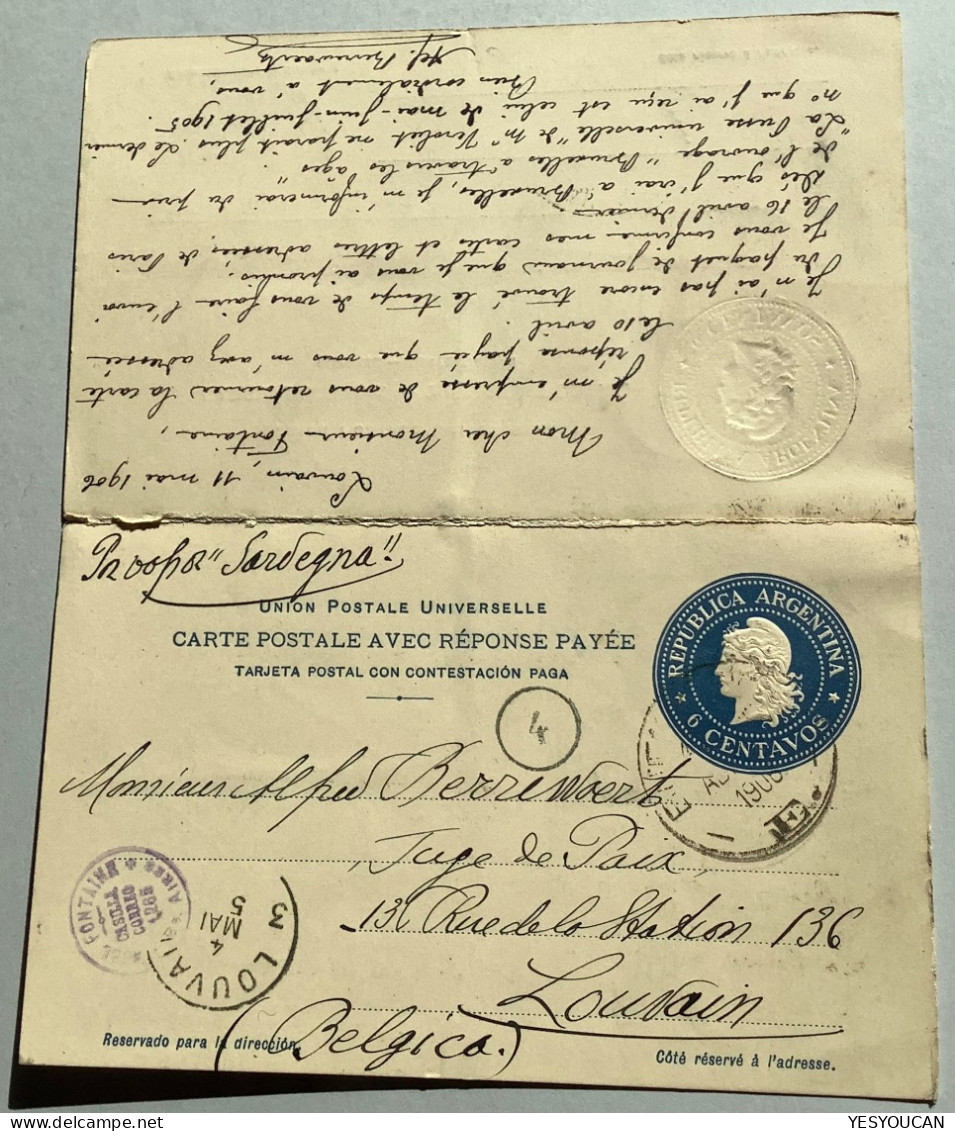 Louvain, 11 mai 1906
Mon cher Monsieur Fontaine,
Je m'empresse de vous retourner la carte
réponse payée que vous m'avez adressée
le 10 avril.
Je n'ai pas encore trouvé le temps de vous faire l'envoi
du paquet de journaux que je vous ai promis.
Je vous confirme mes cartes et lettres adressées de Paris
le 16 avril dernier
Dès que j'irai à Bruxelles, je m'informerai du prix
de l'ouvrage "Bruxelles à travers les âges
"La Presse universelle" de Mr ne paraît plus. Le dernier
no que j'ai reçu est celui de mai-juin-juillet 1905.
Bien cordialement à vous,
Alf. Berrewaerts
"Sardegna"
UNION POSTALE UNIVERSELLE
CARTE POSTALE AVEC RÉPONSE PAYÉE
TARJETA POSTAL CON CONTESTACIÓN PAGA
REPUBLICA ARGENTINA
6 CENTAVOS
4
1906
Monsieur Alfred Berrewaerts
Juge de Paix
136 Rue de la Station 136
Louvain
(Belgica.)
FONTAINE
CASILLA
CORREO
1265
AIRES
LOUVAIN
4
MAI
5
3
Reservado para la dirección.
Côté réservé à l'adresse.
YESYOUCAN